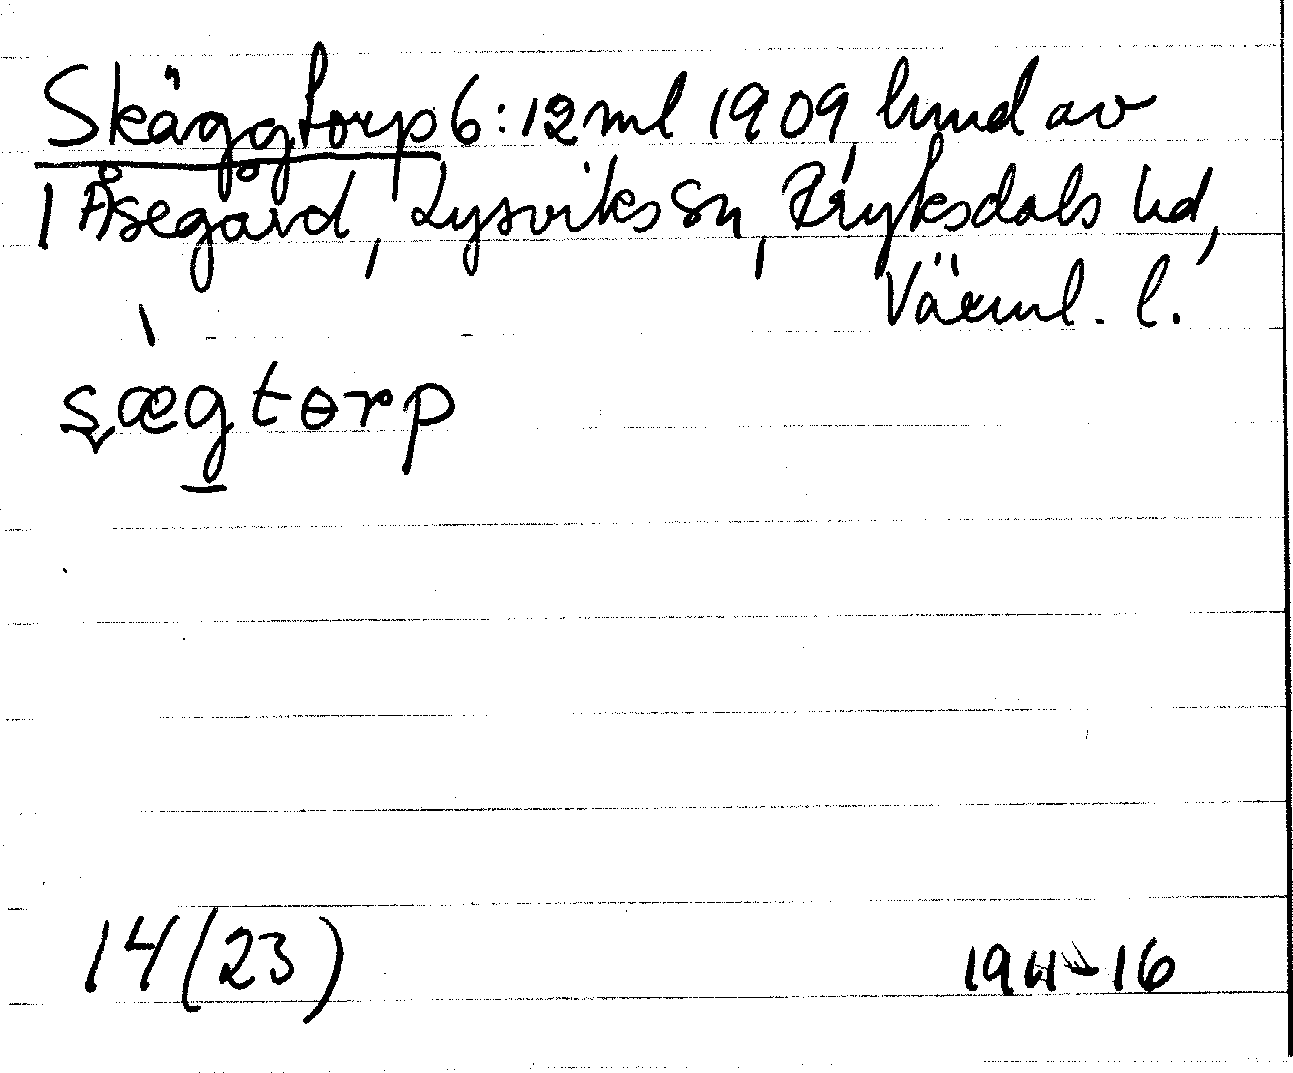 Skäggtorp 6:12 ml 1909, lund av
1 Åsegård, Lysviks sn, Fryksdals hd,
Värml. l.
sægtɵrp
14 (23)
1911-16